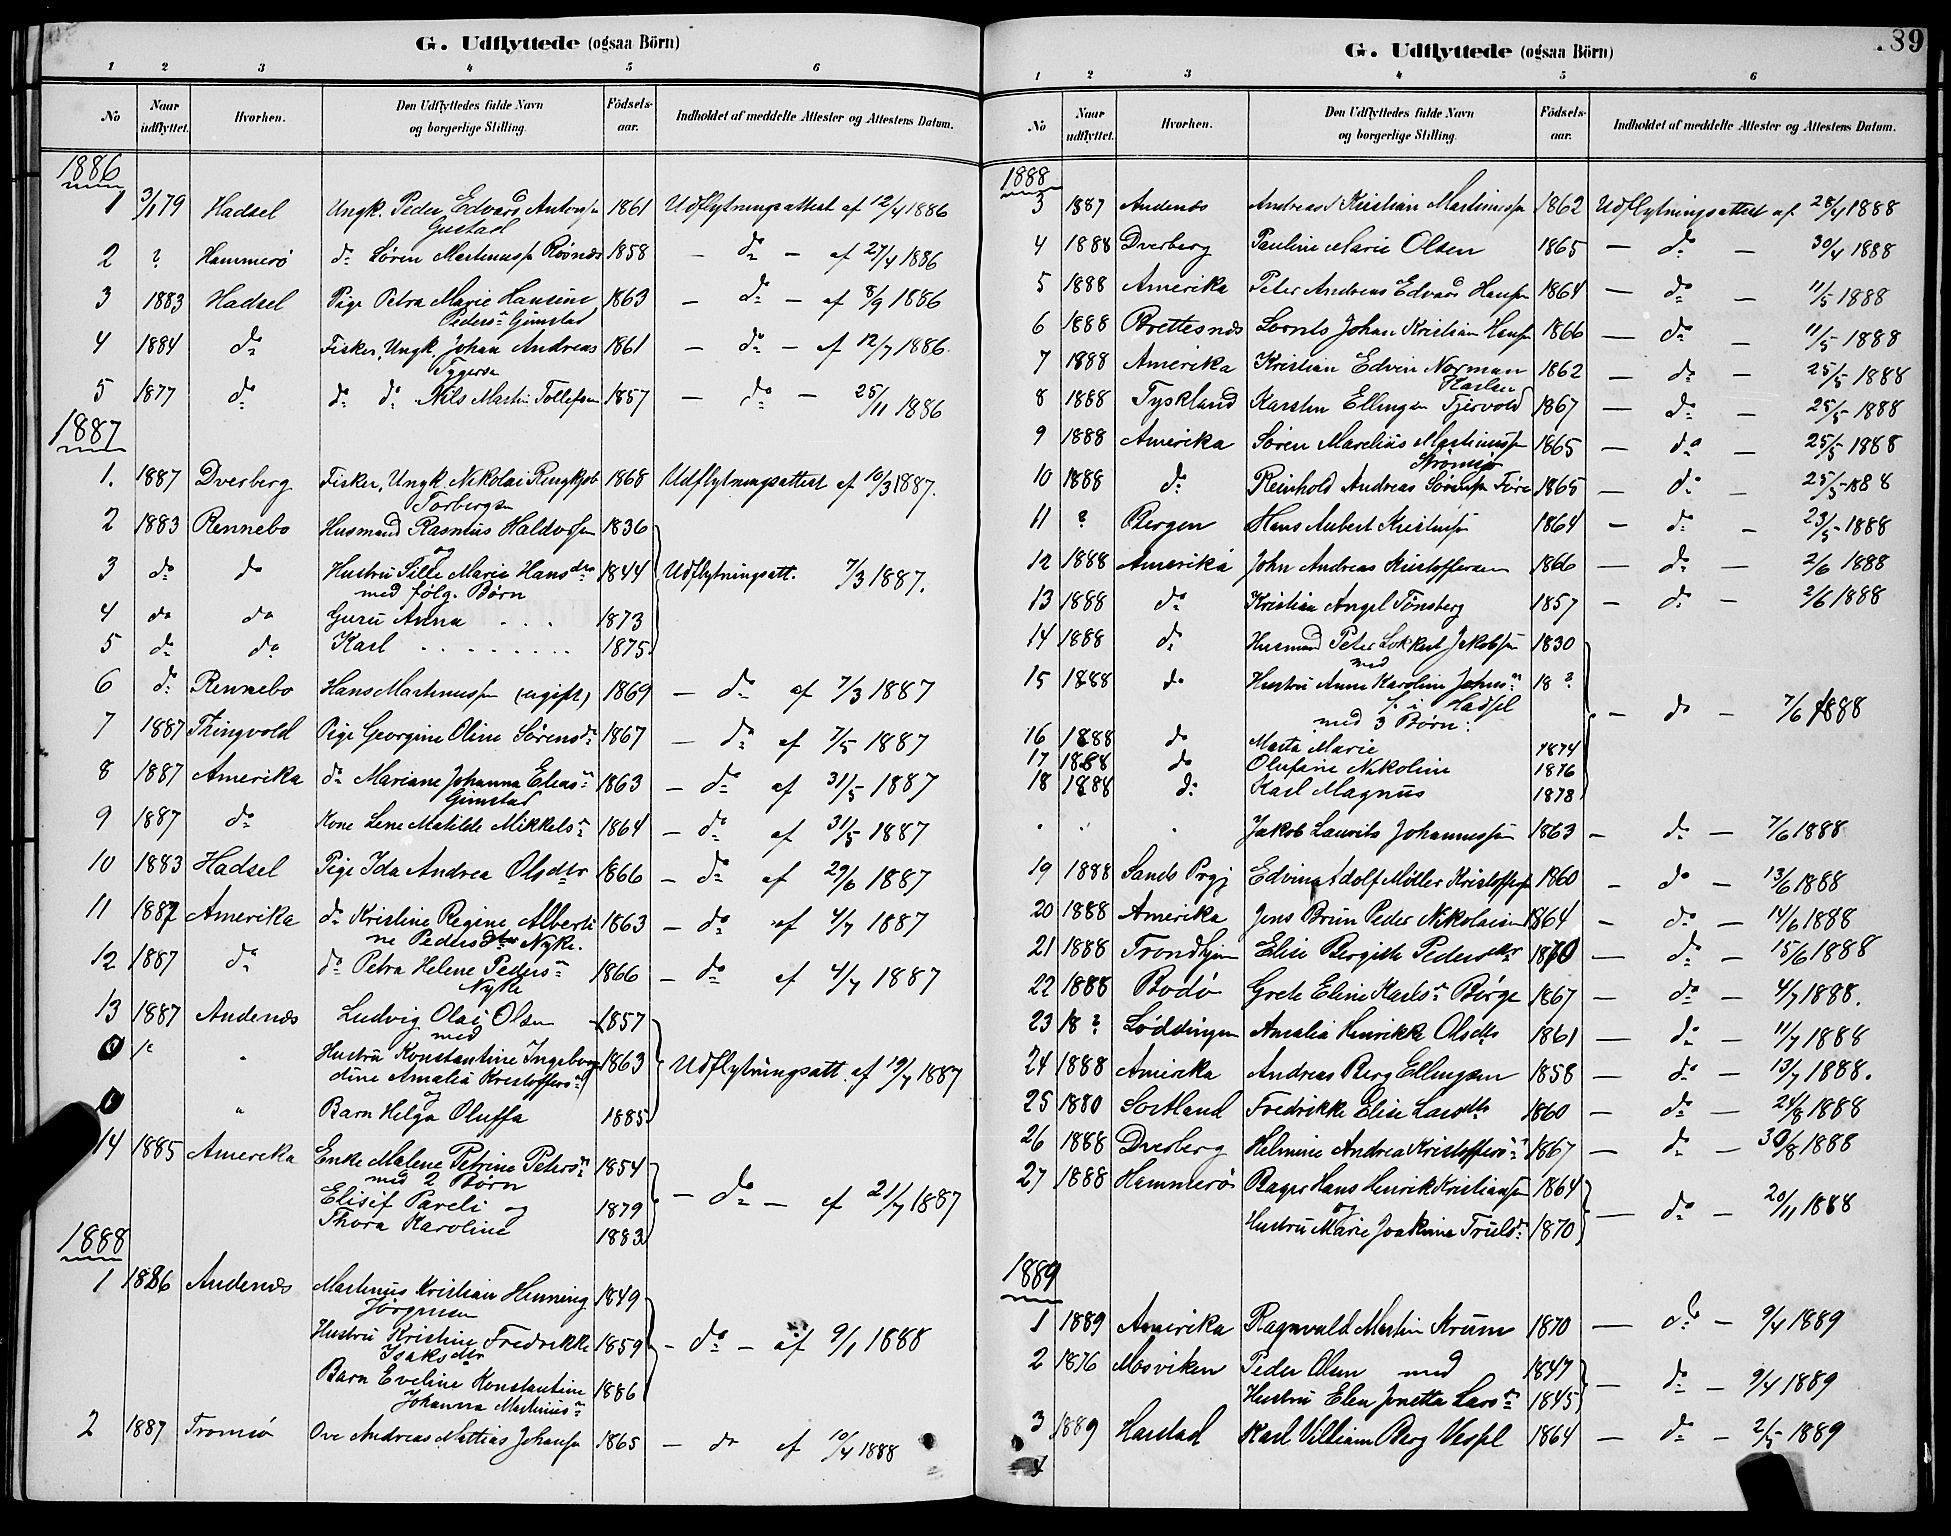 G. Udflyttede (ogsaa Börn)
1 2 3 4 5 6
No Naar udflyttet. Hvorhen. Den Udflyttedes fulde Navn og borgerlige Stilling. Födsels-aar. Indholdet af meddelte Attester og Attestens Datum.
1886
1 3/1 79 Hadsel Ungk. Peder Edvard 1861 Udflytningsattest af 12/4 1886
2 ? Hammerö do Sören Martinussen 1858 — do — af 27/4 1886
3 1883 Hadsel Pige Petra Marie Hansine 1863 — do — af 8/9 1886
Pedersdr Gimstad
4 1884 do Fisker, Ungk. Johan Andreas 1861 — do — af 12/7 1886.
5 1877 do do do Nils Martin Tollefsen 1857 — do — 25/11 1886
1887
1. 1887 Dverberg Fisker, Ungk. Nikolai 1868 Udflytningsattest af 10/3 1887.
Torbergsen
2 1883 Rennebo Husmand Rasmus Haldorsen 1836
og
3 do do Hustru Marie Hansdtr 1844 Udflytningsatt. 7/3 1887.
med følg. Børn
4 do do Guru Anna . . . 1873
5 do do Karl . . . . . . . . 1875
6 do Rennebo Hans Martinussen (ugift) 1869 — do af 7/3 1887
7 1887 Thingvold Pige Georgine Oline Sörensdr 1867 — do af 7/5 1887
8 1887 Amerika do Mariane Johanna Eliasdr 1863 — do af 31/5 1887
Gimstad
9 1887 do Kone Lene Matilde Mikkelsdr 1864 — do af 31/5 1887
10 1883 Hadsel Pige Ida Andrea Olsdtr 1866 — do af 29/6 1887
11 1887 Amerika do Kristine Regine Alberti 1863 — do af 4/7 1887
ne Pedersdtr Nyke.
12 1887 do do Petra Helene Pedersdr 1866 — do af 4/7 1887
Nyke
13 1887 Andenæs Ludvig Olai Olsen 1857
med
Hustru Konstantine Ingeborg 1863 Udflytningsatt. af 19/7 1887
dine Amalia Kristoffersdr
og
Barn Helga Oluffa 1885
14 1885 Amerika Enke Malene Petrine Petersdr 1854
med 2 Børn
Elisif Paveli og 1879 — do — af 21/7 1887
Thora Karoline 1883
1888
1 1886 Andenæs Martinus Kristian Henning 1849
Jørgensen
Hustru Kristine Fredrikke 1859 — do — af 9/1 1888
Isaksdtr
Barn Eveline Konstantine 1886
Johanna Martinusdr
2 1887 Tromsö Ove Andreas Mattias Johansen 1865 — do af 10/4 1888
G. Udflyttede (ogsaa Börn) 89
1 2 3 4 5 6
No Naar udflyttet. Hvorhen. Den Udflyttedes fulde Navn og borgerlige Stilling. Födsels-aar. Indholdet af meddelte Attester og Attestens Datum.
1888
3 1887 Andenæs Andreas Kristian Martinussen 1862 Udflytningsattest af 28/4 1888
4 1888 Dverberg Pauline Marie Olsen 1865 — do — 30/4 1888
5 1888 Amerika Peter Andreas Edvard Hansen 1864 — do — 11/5 1888
6 1888 Brettesnæs Lornts Johan Kristian Hansen 1866 — do — 11/5 1888
7 1888 Amerika Kristian Edvin Norman 1862 — do — 25/5 1888
8 1888 Tyskland Karsten Ellingsen 1867 — do — 25/5 1888
9 1888 Amerika Sören Marelius Martinussen 1865 — do — 25/5 1888
10 1888 do Reinhold Andreas Sörensen Före 1865 — do — 25/5 1888
11 ? Bergen Hans Aubert Kristensen 1864 — do — 23/5 1888
12 1888 Amerika John Andreas Kristoffersen 1866 — do — 2/6 1888
13 1888 do Kristian Angel Tönsberg 1857 — do — 2/6 1888
14 1888 do Husmand Peter Lokkert Jakobsen 1830
med
15 1888 do Hustru Anne Karoline Johnsdr 18 ?
f. i Hadsel
med 3 Børn: — do — 7/6 1888
16 1888 do Marta Marie 1874
17 1888 do Olufine Nikoline 1876
18 1888 do Karl Magnus 1878
. . . Jakob Laurits Johannessen 1863 — do — 7/6 1888
19 1888 Sands Prgj Edvin Adolf Möller Kristoffersen 1860 — do — 13/6 1888
20 1888 Amerika Jens Brun Peder Nikolaisen 1864 — do — 14/6 1888
21 1888 Trondhjem Elise Bergitte Pedersdtr 1870 — do — 15/6 1888
22 1888 Bodö Grete Eline Karlsdr Börge 1867 — do — 4/7 1888.
23 18 ? Löddingen Amalia Henrikke Olsdtr 1861 — do — 11/7 1888
24 1888 Amerika Andreas Berg Ellingsen 1858 — do — 13/7 1888.
25 1880 Sortland Fredrikke Elise Larsdtr 1860 — do — 24/8 1888
26 1888 Dverberg Helmine Andrea Kristoffersdr 1867 — do — 30/8 1888
27 1888 Hammerö Bager Hans Henrik Kristiansen 1864
og — do — 20/11 1888
Hustru Marie Joakime Trulsdr 1870
1889
1 1889 Amerika Ragnvald Martin Krum 1870 — do — 9/4 1889
2 1876 Mosviken Peder Olsen med 1847
Hustru Elen Jonetta Larsdr 1845 — do — 9/4 1889
3 1889 Harstad Karl Villiam Berg 1864 — do — 2/5 1889
4